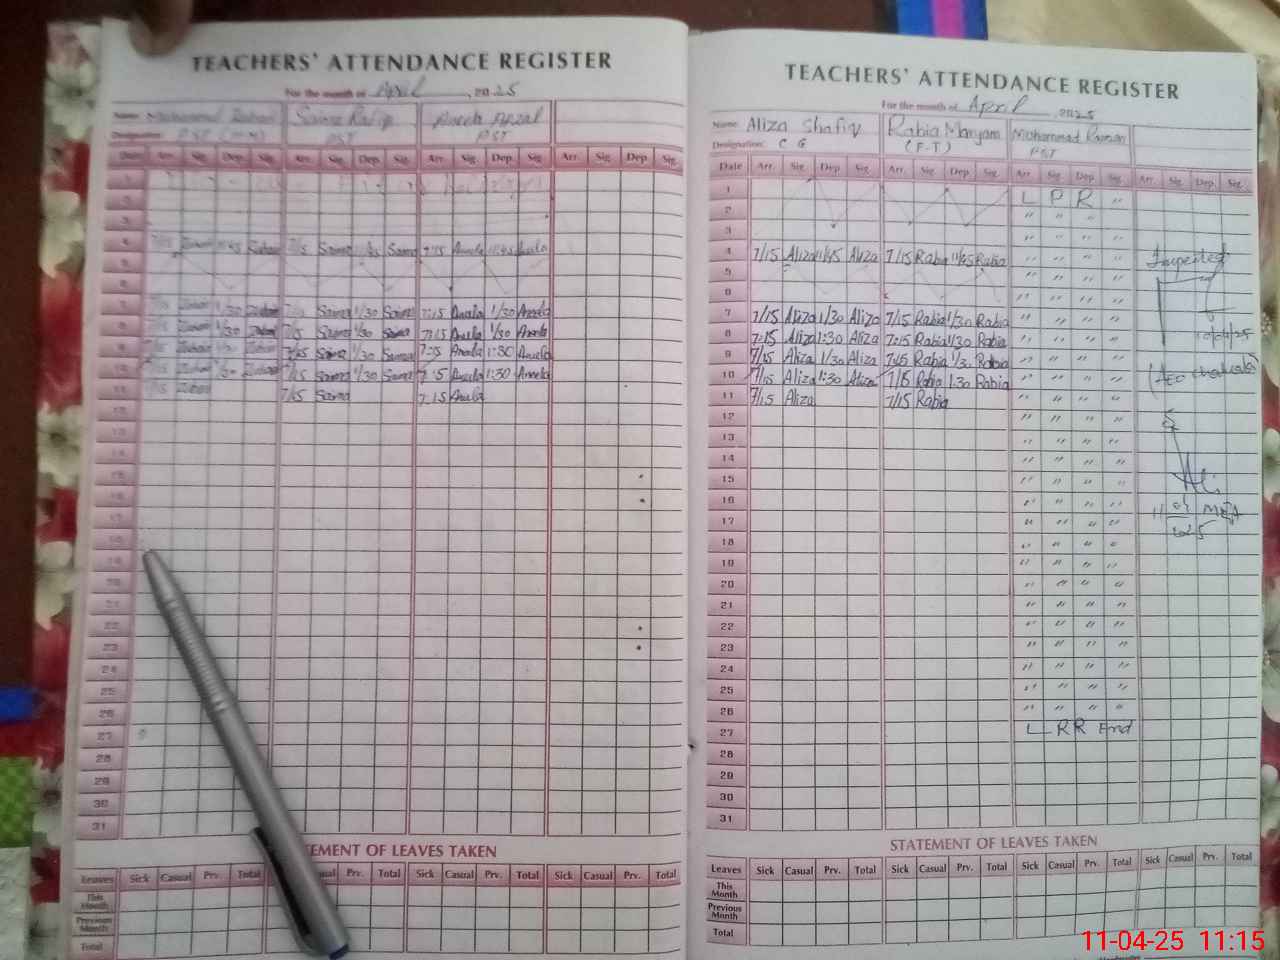 TEACHERS' ATTENDANCE REGISTER
For the month of April, 2025
Name Saima Rafiq Aneela Afzal
Designation PST PST
Date Arr. Sig. Dep. Sig. Arr. Sig. Dep. Sig. Arr. Sig. Dep. Sig. Arr. Sig. Dep. Sig.
1
2
3
4 7/15 11:45 7/15 Saima 11/45 Saima 7/15 Aneela 11:45 Aneela
5
6
7 7/15 1/30 7/15 Saima 1/30 Saima 7:15 Aneela 1/30 Aneela
8 7/15 1/30 7/15 Saima 1/30 Saima 7:15 Aneela 1/30 Aneela
9 7/15 1/30 7/15 Saima 1/30 Saima 7:15 Aneela 1:30 Aneela
10 7/15 1/30 7/15 Saima 1/30 Saima 7:15 Aneela 1:30 Aneela
11 7/15 7/15 Saima 7:15 Aneela
12
13
14
15
16
17
18
19
20
21
22
23
24
25
26
27
28
29
30
31
STATEMENT OF LEAVES TAKEN
Leaves Sick Casual Prv. Total Casual Prv. Total Sick Casual Prv. Total Sick Casual Prv. Total
This Month
Previous Month
Total
TEACHERS' ATTENDANCE REGISTER
For the month of April, 2025
Name Aliza Shafiq Rabia Maryam Muhammad
Designation: C G (F-T) PST
Date Arr. Sig. Dep. Sig. Arr. Sig. Dep. Sig. Arr. Sig. Dep. Sig. Arr. Sig. Dep. Sig.
1 L P R "
2 " " "
3 " " " "
4 7/15 Aliza 11/45 Aliza 7/15 Rabia 11/45 Rabia " " " "
5 " " " "
6 " " " "
7 7/15 Aliza 1/30 Aliza 7/15 Rabia 1/30 Rabia " " " "
8 7:15 Aliza 1:30 Aliza 7:15 Rabia 1/30 Rabia " " " "
9 7/15 Aliza 1/30 Aliza 7/15 Rabia 1/30 Rabia " " " "
10 7/15 Aliza 1:30 Aliza 7/15 Rabia 1:30 Rabia " " " "
11 7/15 Aliza 7/15 Rabia " " " "
12 " " " "
13 " " " "
14 " " " "
15 " " " "
16 " " " "
17 " " " "
18 " " " "
19 " " " "
20 " " " "
21 " " " "
22 " " " "
23 " " " "
24 " " " "
25 " " " "
26 " " " "
27 L R R End
28
29
30
31
Inspected
10/4/25
MEA
2025
STATEMENT OF LEAVES TAKEN
Leaves Sick Casual Prv. Total Sick Casual Prv. Total Sick Casual Prv. Total Sick Casual Prv. Total
This Month
Previous Month
Total
11-04-25 11:15